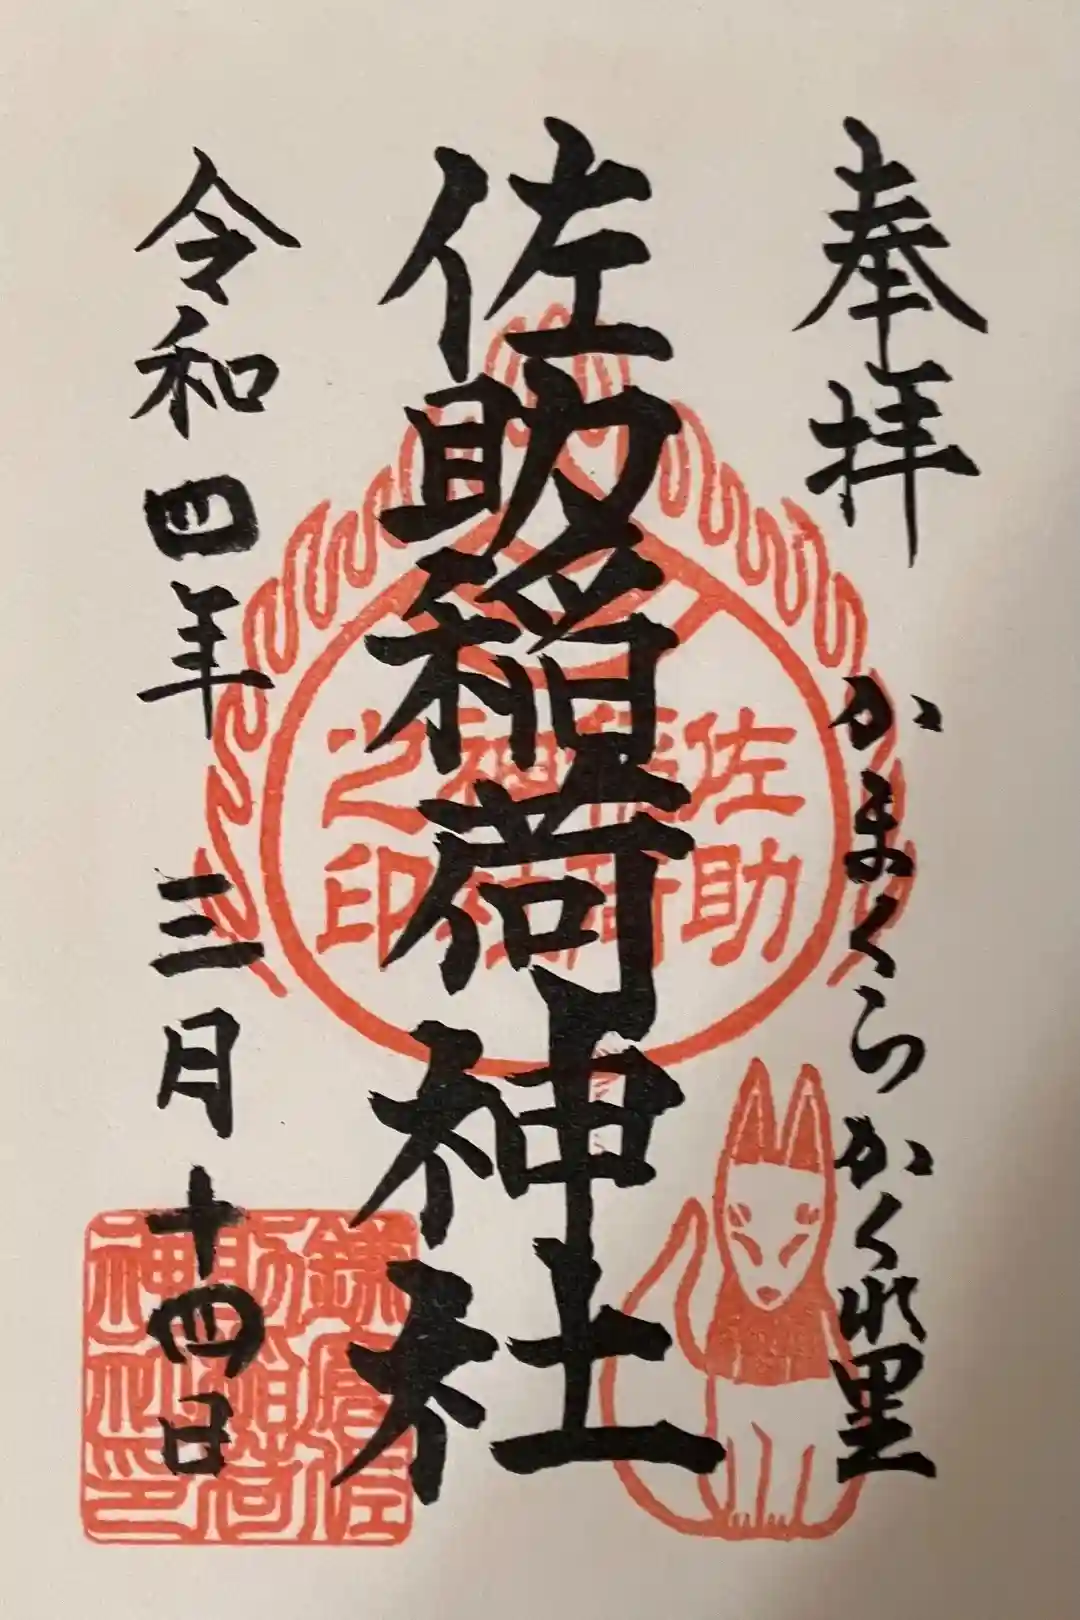 奉拝
かまくらかくれ里
佐助稲荷神社
令和四年三月十四日
佐助
稲荷
神社
之印
鎌倉佐
助稲荷
神社印